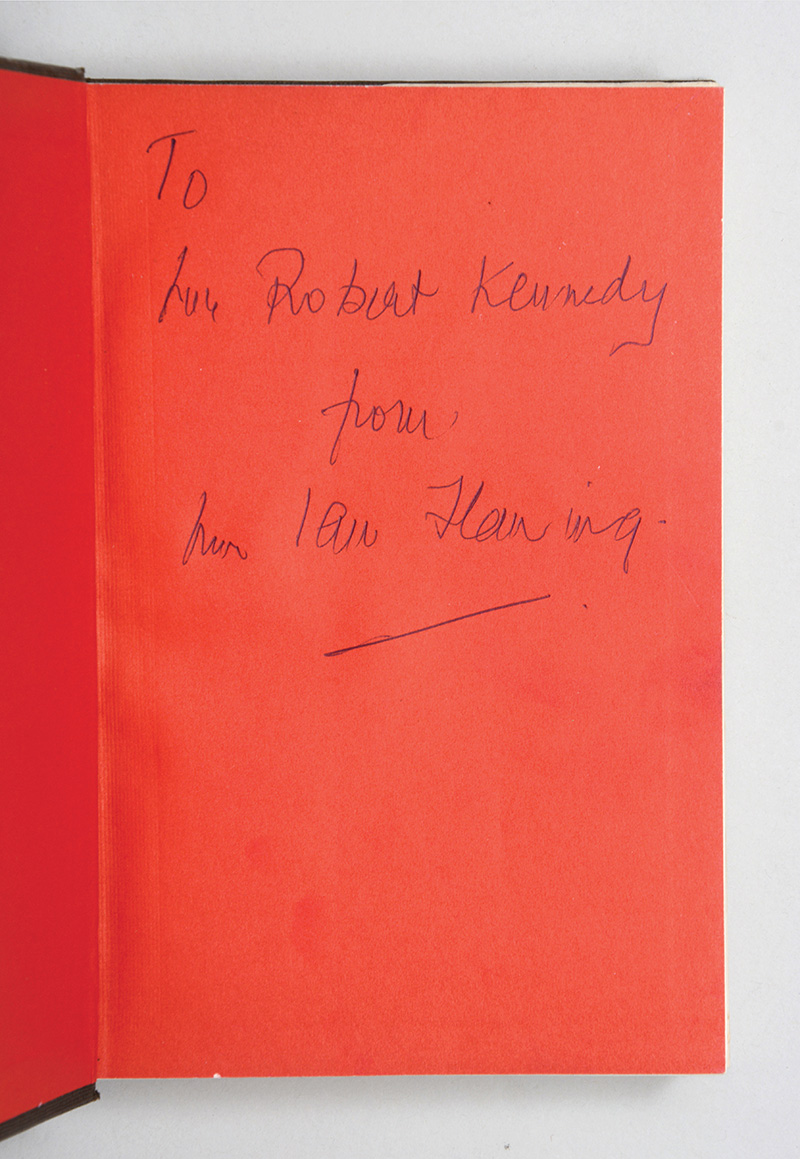 To
Robert Kennedy
from
Ian Fleming.